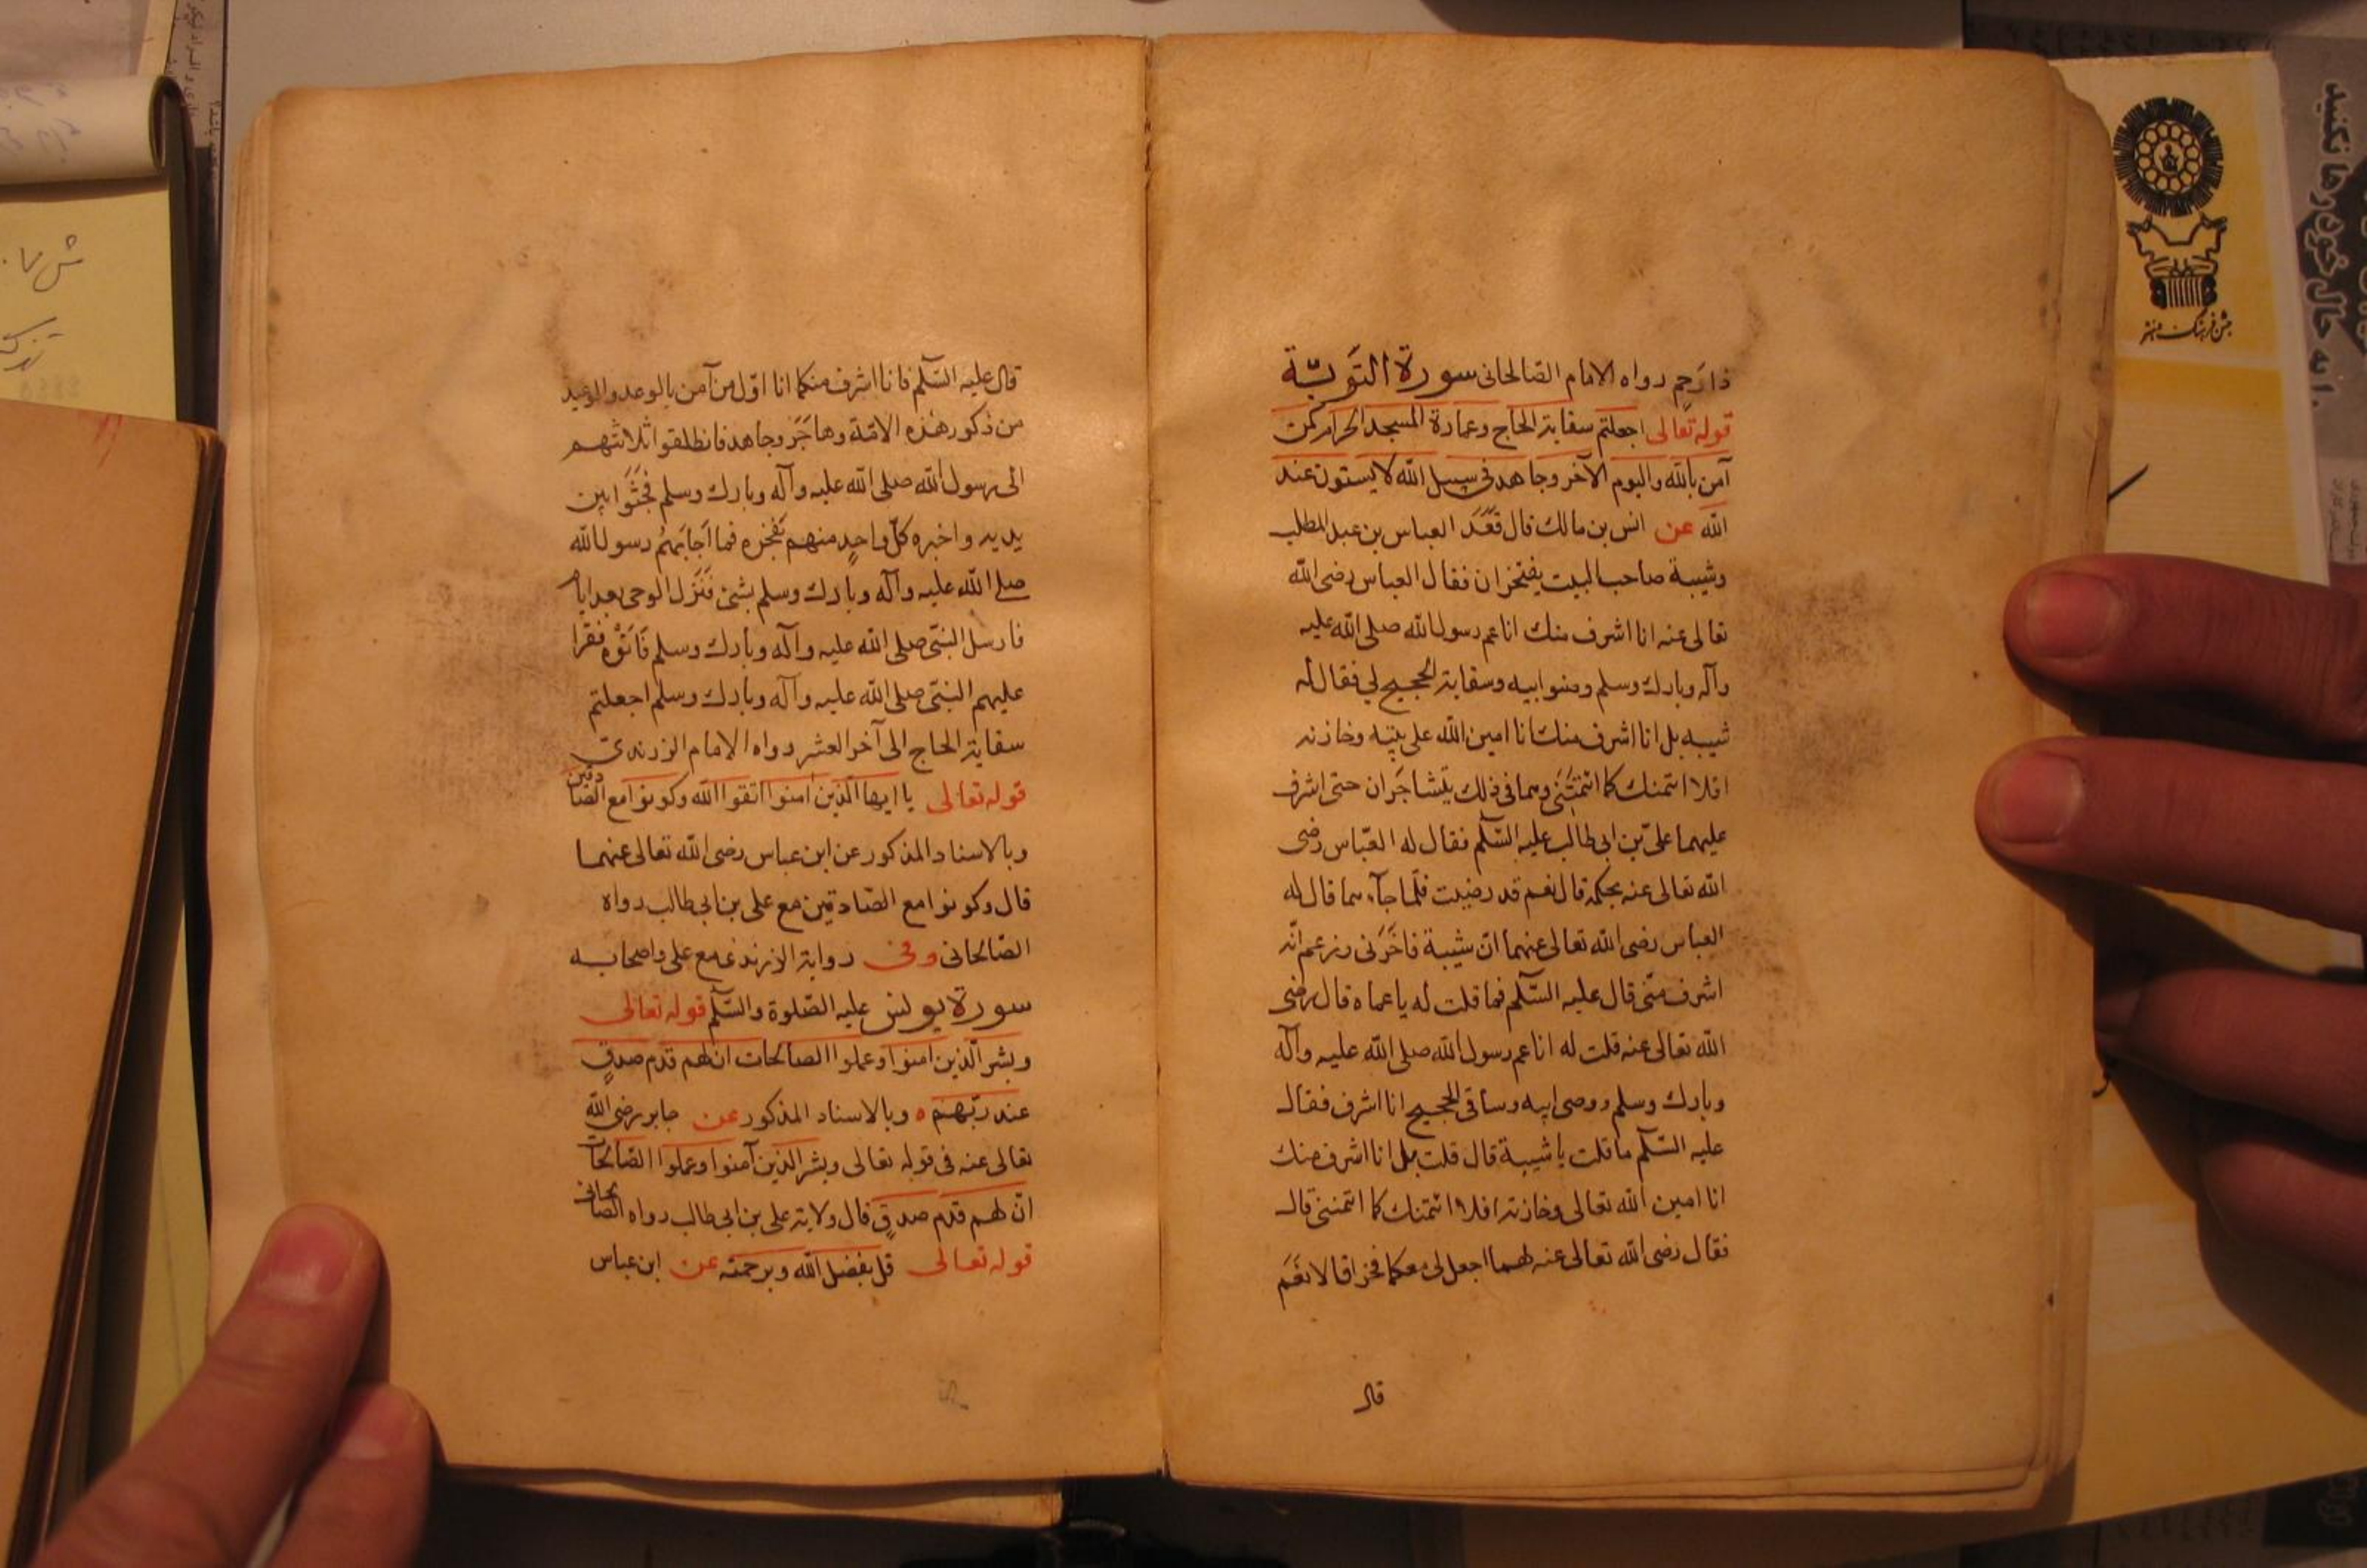 ذا رَحِمٍ رواه الامام الصّالحانى سورة التَّوبَة
قوله تعالى اجعلتم سقاية الحاج وعمارة المسجد الحرام كمن
آمن بالله واليوم الآخر وجاهد فى سبيل الله لا يستون عند
الله عن انس بن مالك قال قَعَدَ العباس بن عبد المطلب
وشيبة صاحب البيت يفتخران فقال العباس رضى الله
تعالى عنه انا اشرف منك انا عم رسول الله صلى الله عليه
وآله وبارك وسلم وصنو ابيه وسقاية الحجيج لى فقال له
شيبه بل انا اشرف منك انا امين الله على بيته وخازنه
افلا ائتمنك كما ائتمَنَنى وهما فى ذلك يتشاجَران حتى اشرف
عليهما علىّ بن ابى طالب عليه السَّلم فقال له العبّاس رضى
الله تعالى عنه بحكمه قال نعم قد رضيت فلمّا جآء هما قال له
العباس رضى الله تعالى عنهما انّ شيبة فاخَرَنى وزعم انّه
اشرف منّى قال عليه السَّلم فما قلت له يا عماه قال رضى
الله تعالى عنه قلت له انا عم رسول الله صلى الله عليه وآله
وبارك وسلم ووصى ابيه وساقى الحجيج انا اشرف فقال
عليه السَّلم ما قلت يا شيبة قال قلت بل انا اشرف منك
انا امين الله تعالى وخازنه افلا ائتمنك كما ائتمننى قال
فقال رضى الله تعالى عنه لهما اجعل لى معكما فخرا قالا نَعَم
قال
قال عليه السَّلم فانا اشرف منكما انا اوّل من آمن بالوعد والوعيد
من ذكور هٰذه الامّة وهاجَرَ وجاهد فانطلقوا ثلاثتهم
الى رسول الله صلى الله عليه وآله وبارك وسلم فجَثَوا بين
يديه واخبره كلّ واحدٍ منهم بفخره فما اَجابَهُم رسول الله
صلى الله عليه وآله وبارك وسلم بشئ فنَزَل الوحى بعد ايام
فارسل النبّى صلى الله عليه وآله وبارك وسلم فاَتَوْه فقرا
عليهم النبّى صلى الله عليه وآله وبارك وسلم اجعلتم
سقاية الحاج الى آخر العشر رواه الامام الزرندى
قوله تعالى يا ايها الّذين امنوا اتقوا الله وكونوا مع الصّادقين
وبالاسناد المذكور عن ابن عباس رضى الله تعالى عنهما
قال وكونوا مع الصّادقين مع على بن ابى طالب رواه
الصّالحانى وفى رواية الزرندى مع على واصحابه
سورة يونس عليه الصّلوة والسَّلم قوله تعالى
وبشر الّذين امنوا وعملوا الصالحات ان لهم قدم صدقٍ
عند ربّهم ه وبالاسناد المذكور عن جابر رضى الله
تعالى عنه فى قوله تعالى وبشر الذين آمنوا وعملوا الصّالحات
انّ لهم قدم صدقٍ قال ولاية على بن ابى طالب رواه الصّالحانى
قوله تعالى قل بفضل الله وبرحمته عن ابن عباس
جشن فرهنگ و هنر